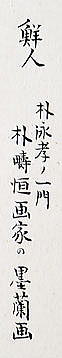 鮮人
朴泳孝ノ一門
朴疇恒画家の墨蘭画